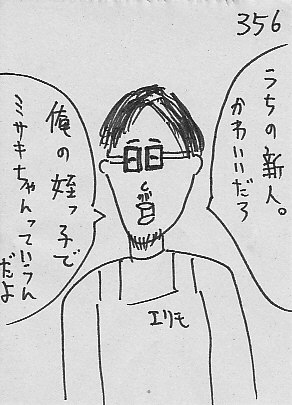 356
うちの新人。
かわいいだろ
俺の姪っ子で
ミサキちゃんっていうん
だよ
エリモ